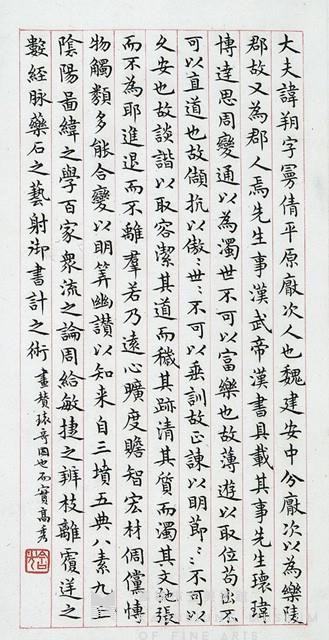 大夫諱朔字曼倩平原厭次人也魏建安中分厭次以為樂陵
郡故又為郡人焉先生事漢武帝漢書具載其事先生瓌瑋
博達思周變通以為濁世不可以富樂也故薄遊以取位苟出不
可以直道也故頡抗以傲〻世〻不可以垂訓故正諫以明節〻不可以
久安也故談諧以取容潔其道而穢其跡清其質而濁其文弛張
而不為耶進退而不離羣若乃遠心曠度贍智宏材倜儻博
物觸類多能合變以明筭幽讚以知来自三墳五典八素九丘
陰陽圖緯之學百家衆流之論周給敏捷之辨枝離覆逆之
數經脉藥石之藝射御書計之術
OF FINE ARTS